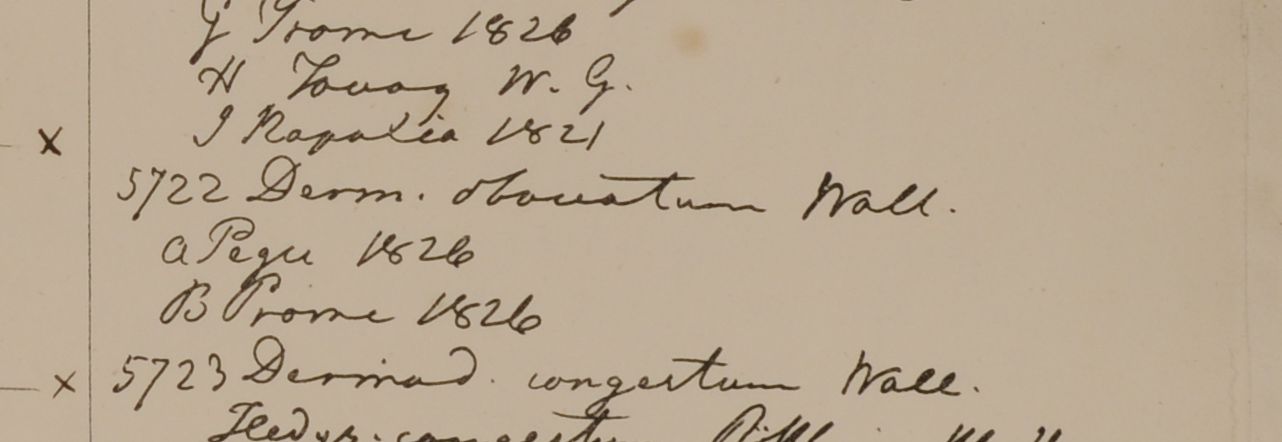 G Prome 1826
H Tavoy W. G.
I Rapatia 1821
x
5722 Desm. obovatum Wall.
a Pegu 1826
B Prome 1826
x 5723 Desmod. congestum Wall.
Hedys. congestum